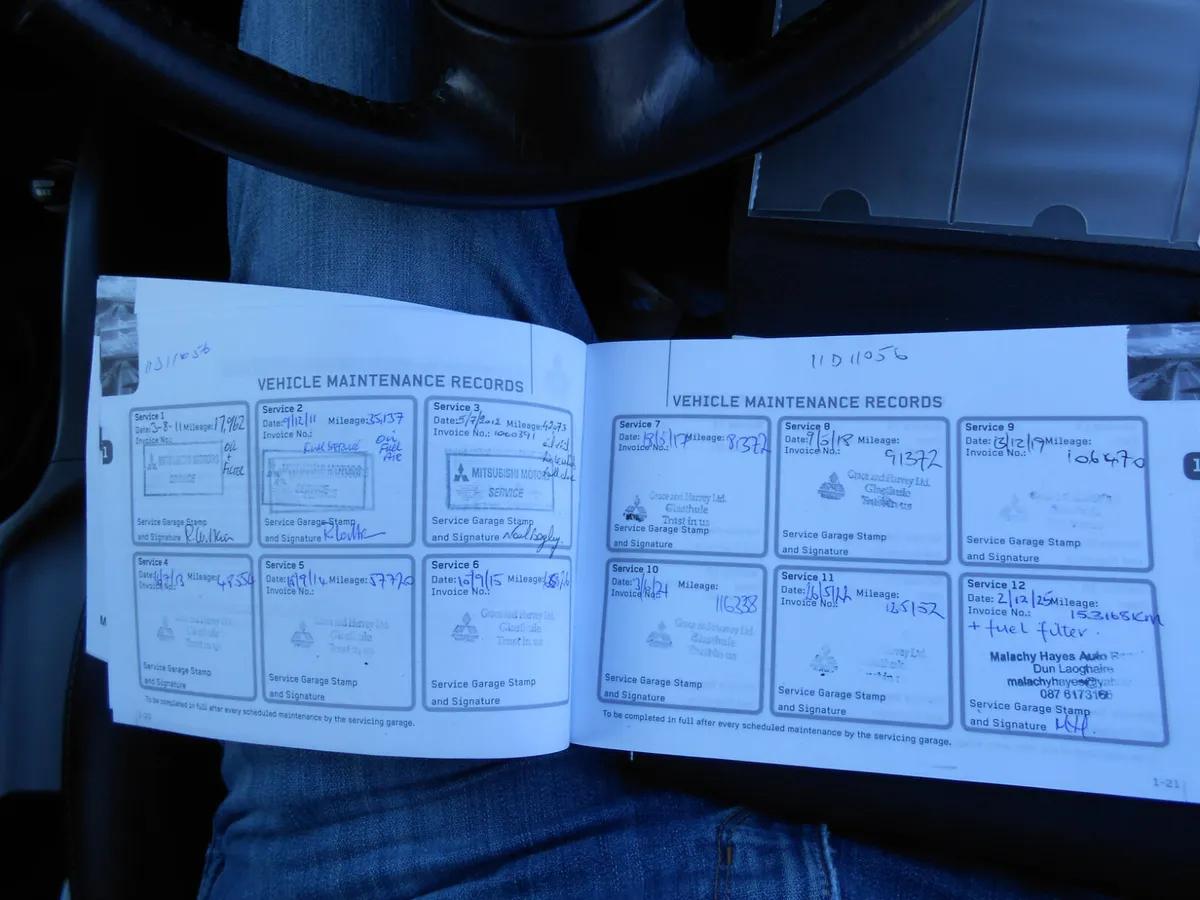 11D11056
VEHICLE MAINTENANCE RECORDS
Service 1
Date: 3-8-11 Mileage: 17,962
Invoice No.:
OIL
+
FILTER
MITSUBISHI MOTORS
SERVICE
Service Garage Stamp
and Signature
Service 2
Date: 9/12/11 Mileage: 35,137
Invoice No.:
Oil
Fuel
Air
MITSUBISHI MOTORS
SERVICE
Service Garage Stamp
and Signature
Service 3
Date: 5/7/2012 Mileage:
Invoice No.: 1060391
MITSUBISHI MOTORS
SERVICE
Service Garage Stamp
and Signature
Service 4
Date: Mileage: 48554
Invoice No.:
Service Garage Stamp
and Signature
Service 5
Date: 16/9/14 Mileage: 57720
Invoice No.:
Service Garage Stamp
and Signature
Service 6
Date: 10/9/15 Mileage:
Invoice No.:
Grace and Harvey Ltd.
Glasthule
Trust in us
Service Garage Stamp
and Signature
To be completed in full after every scheduled maintenance by the servicing garage.
1-20
11 D 11056
VEHICLE MAINTENANCE RECORDS
Service 7
Date: Mileage: 81372
Invoice No.:
Grace and Harvey Ltd.
Glasthule
Trust in us
Service Garage Stamp
and Signature
Service 8
Date: Mileage:
Invoice No.: 91372
Grace and Harvey Ltd.
Glasthule
Trust in us
Service Garage Stamp
and Signature
Service 9
Date: 13/12/19 Mileage:
Invoice No.: 106470
Service Garage Stamp
and Signature
Service 10
Date: 3/6/21 Mileage:
Invoice No.: 116338
Grace and Harvey Ltd.
Glasthule
Trust in us
Service Garage Stamp
and Signature
Service 11
Date: 16/5/22 Mileage:
Invoice No.:
Service Garage Stamp
and Signature
Service 12
Date: 2/12/25 Mileage:
Invoice No.: 153165KM
+ fuel filter.
Malachy Hayes Auto
Dun Laoghaire
087 6173166
Service Garage Stamp
and Signature MH.
To be completed in full after every scheduled maintenance by the servicing garage.
1-21
1